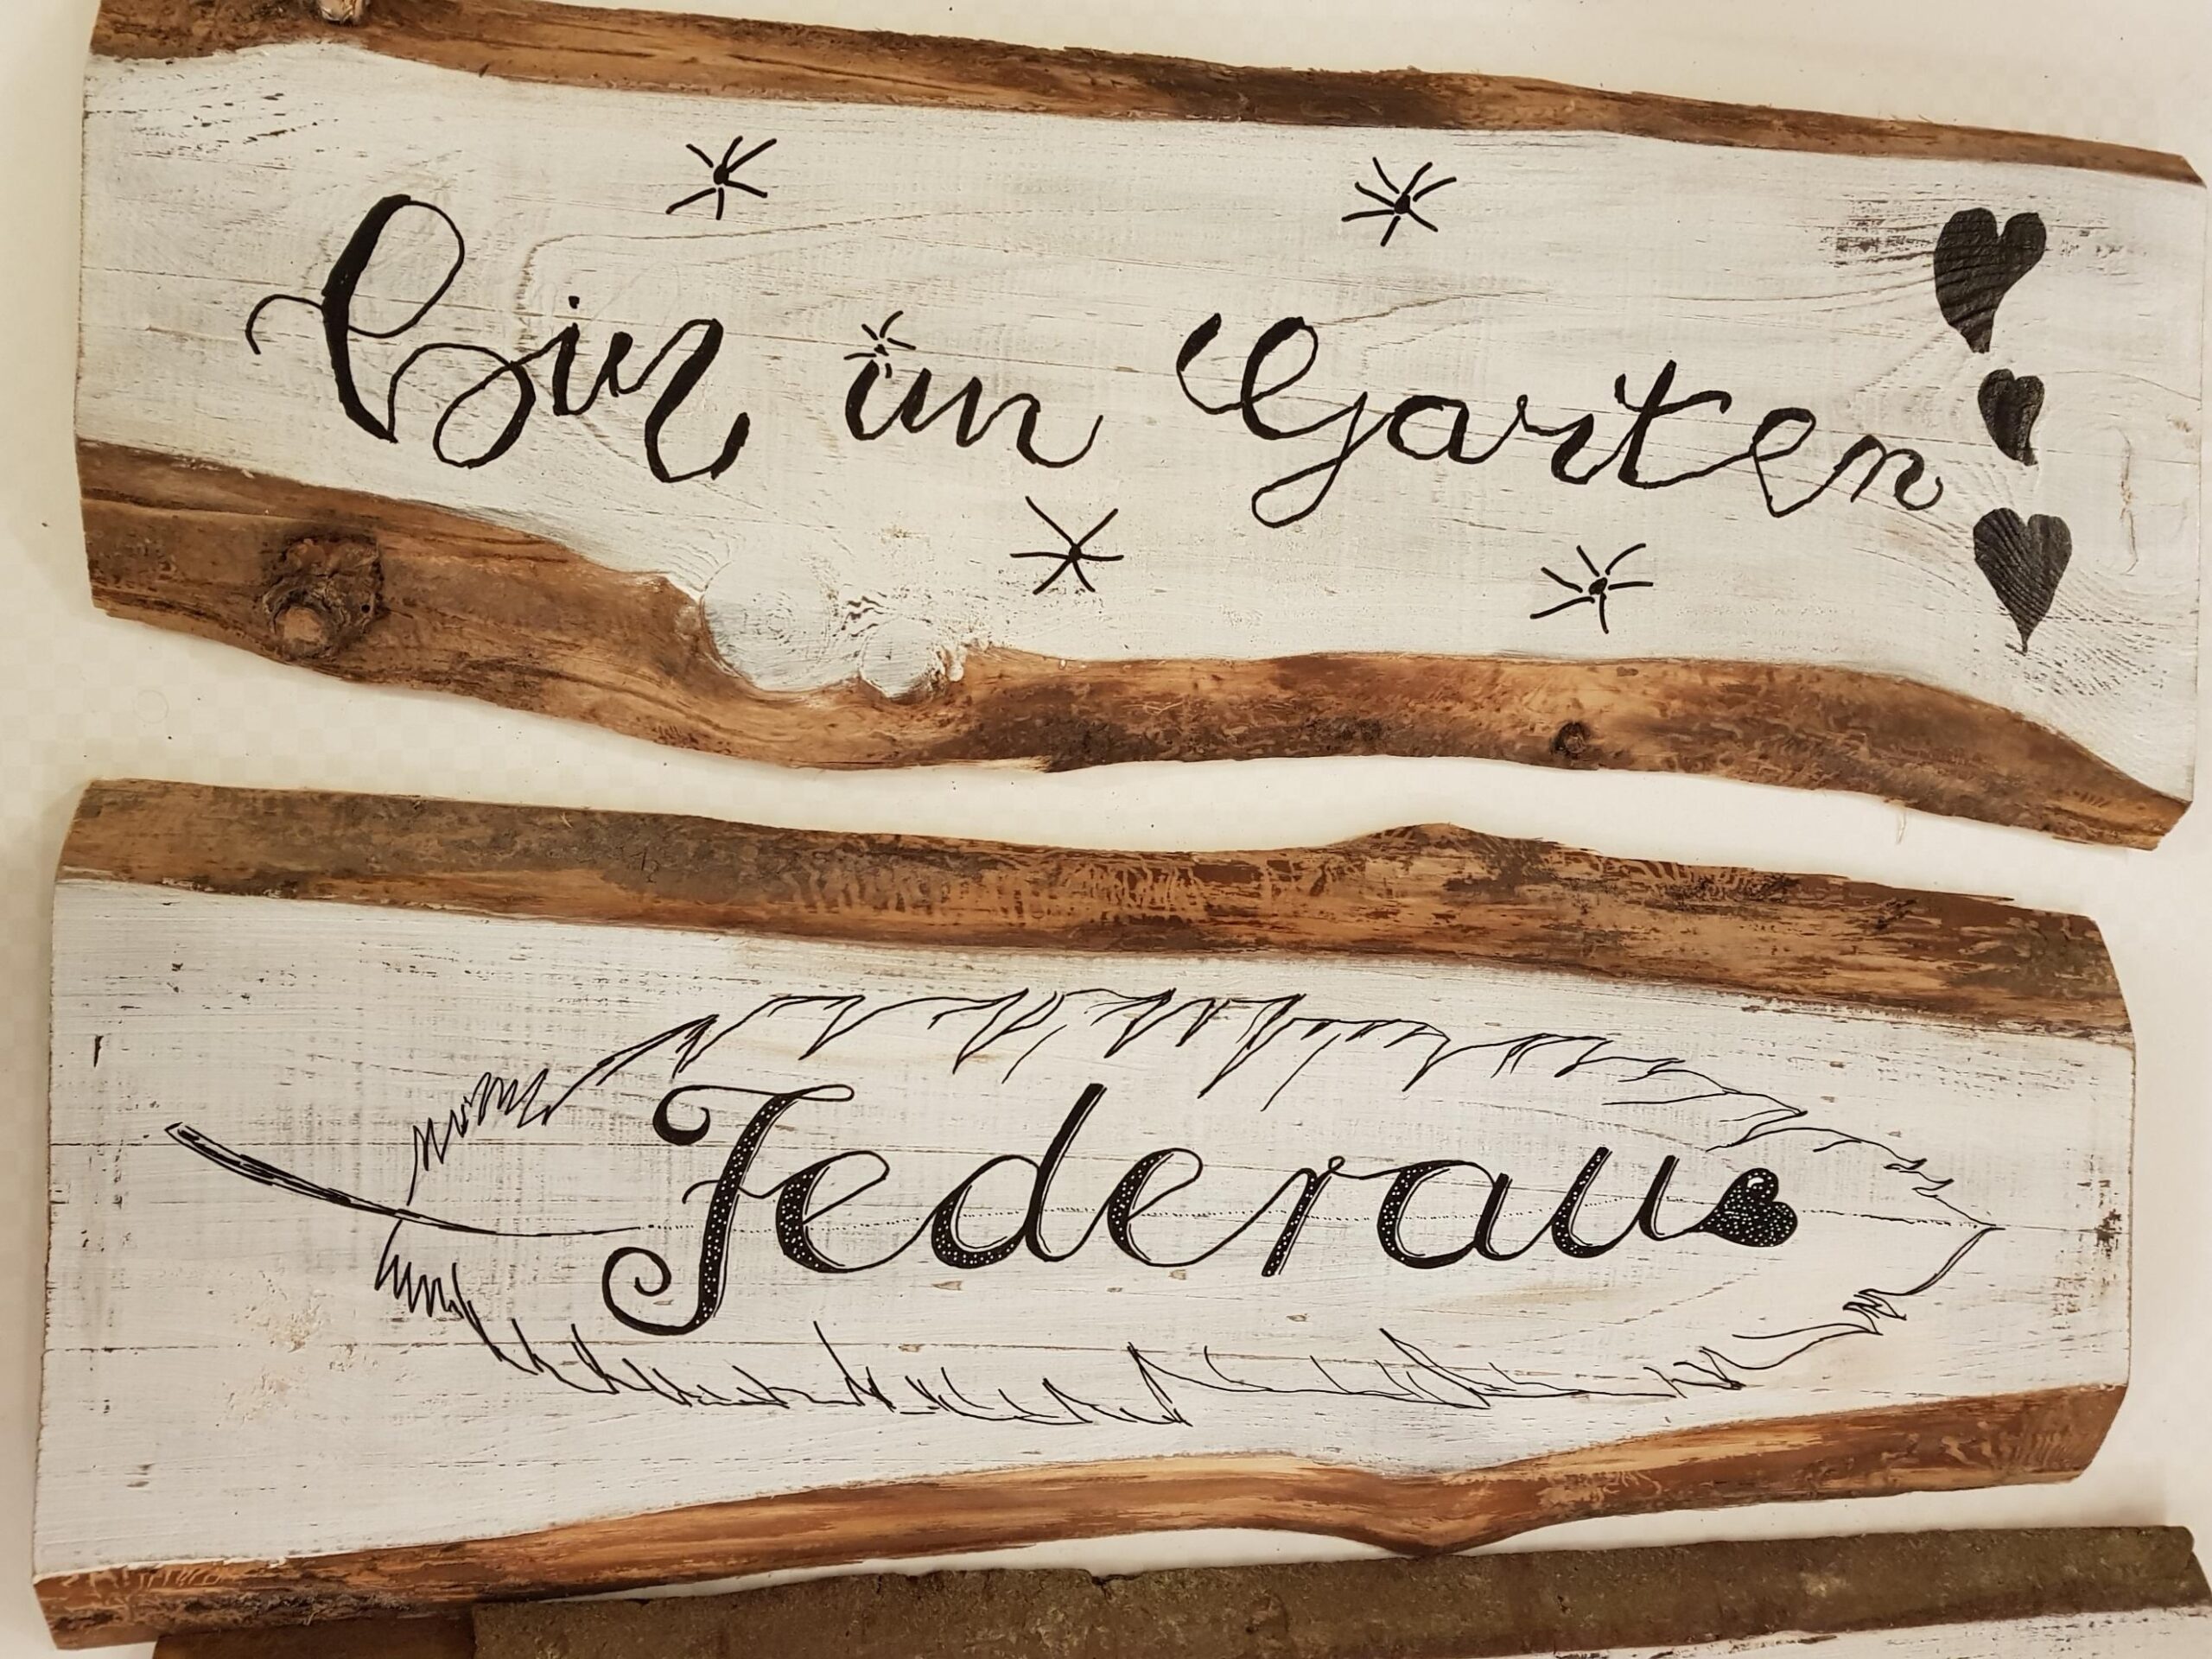 Bin im Garten
Federau